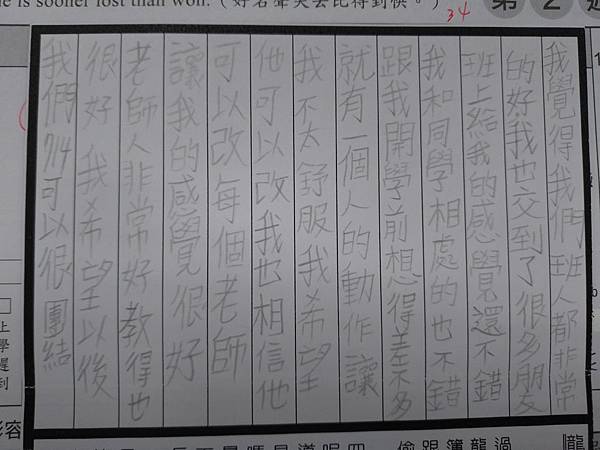 e is sooner lost than won.（好名聲失去比得到快。）
34
第2週
我覺得我們班人都非常
的好我也交到了很多朋友
班上給我的感覺還不錯
我和同學相處的也不錯
跟我開學前想得差不多
就有一個人的動作讓
我不太舒服我希望
他可以改我也相信他
可以改每個老師
讓我的感覺很好
老師人非常好教得也
很好 我希望以後
我們714可以很團結
上學遲到
形容
偷跟簿龍過